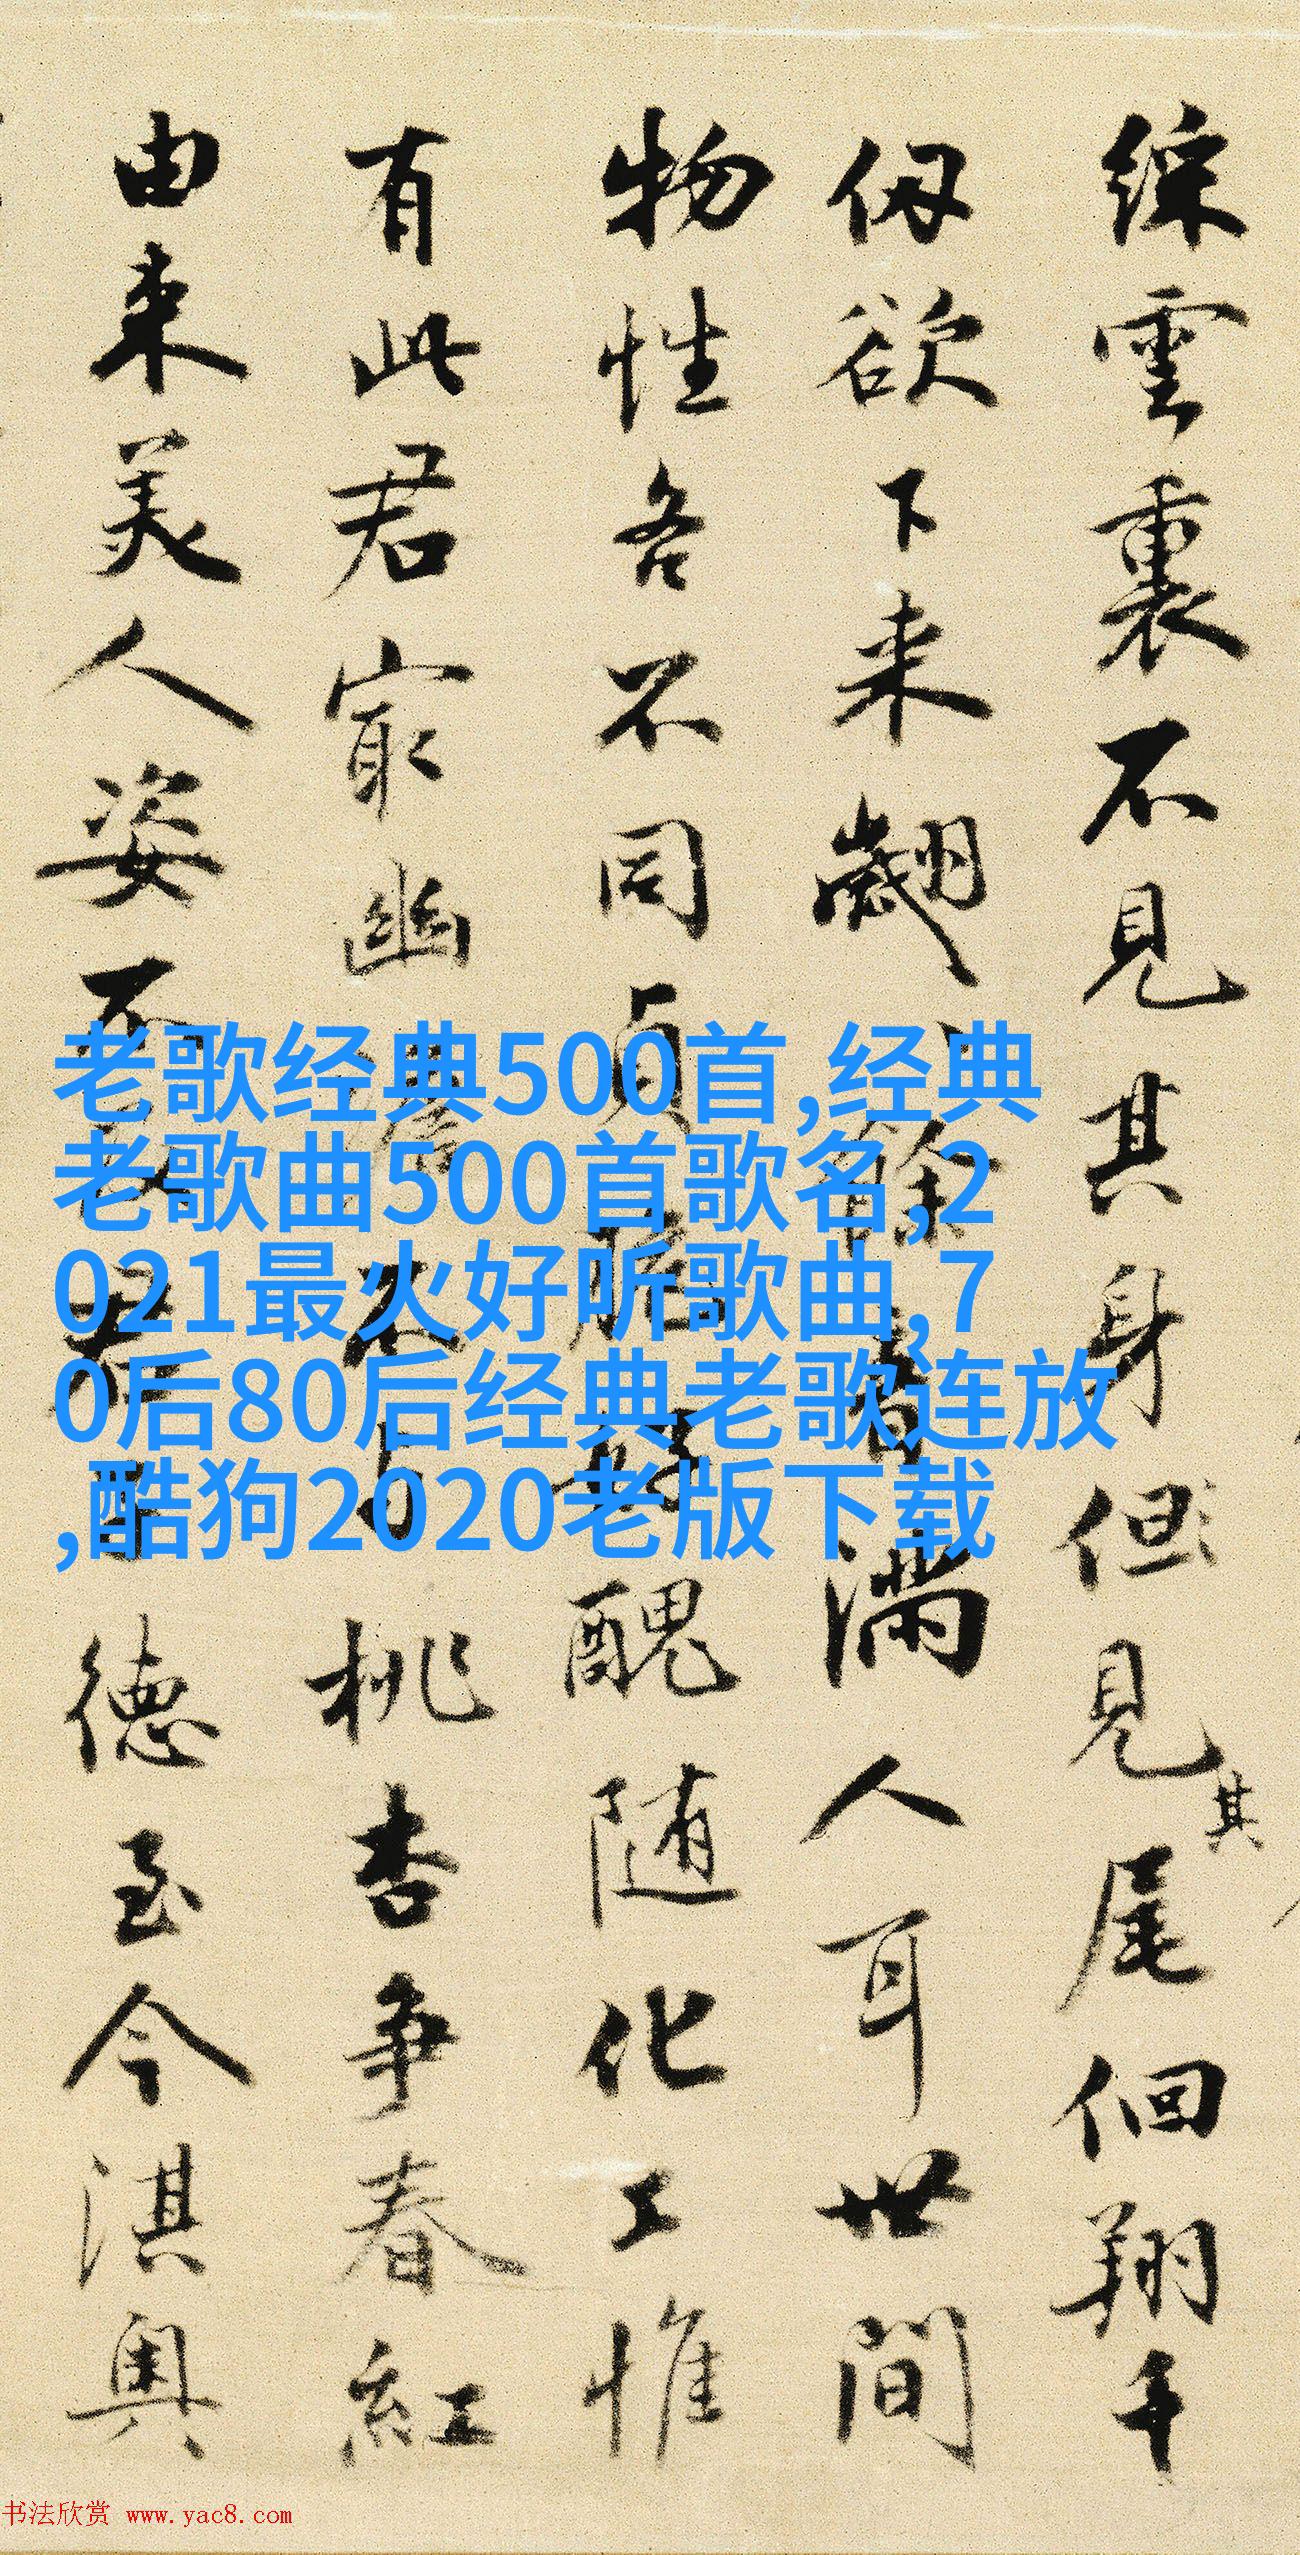 老歌经典500首,经典
老歌曲500首歌名,2
021最火好听歌曲,7
0后80后经典老歌连放
,酷狗2020老版下载
綵雲裏不見其身但見其尾佪翔千
仭欲下来翽餘音满人耳世間
物性各不同貞醜随化工惟
有此君冣幽不与桃杏争春紅
由来美人姿不君德至今淇奥
书法欣赏 www.yac8.com